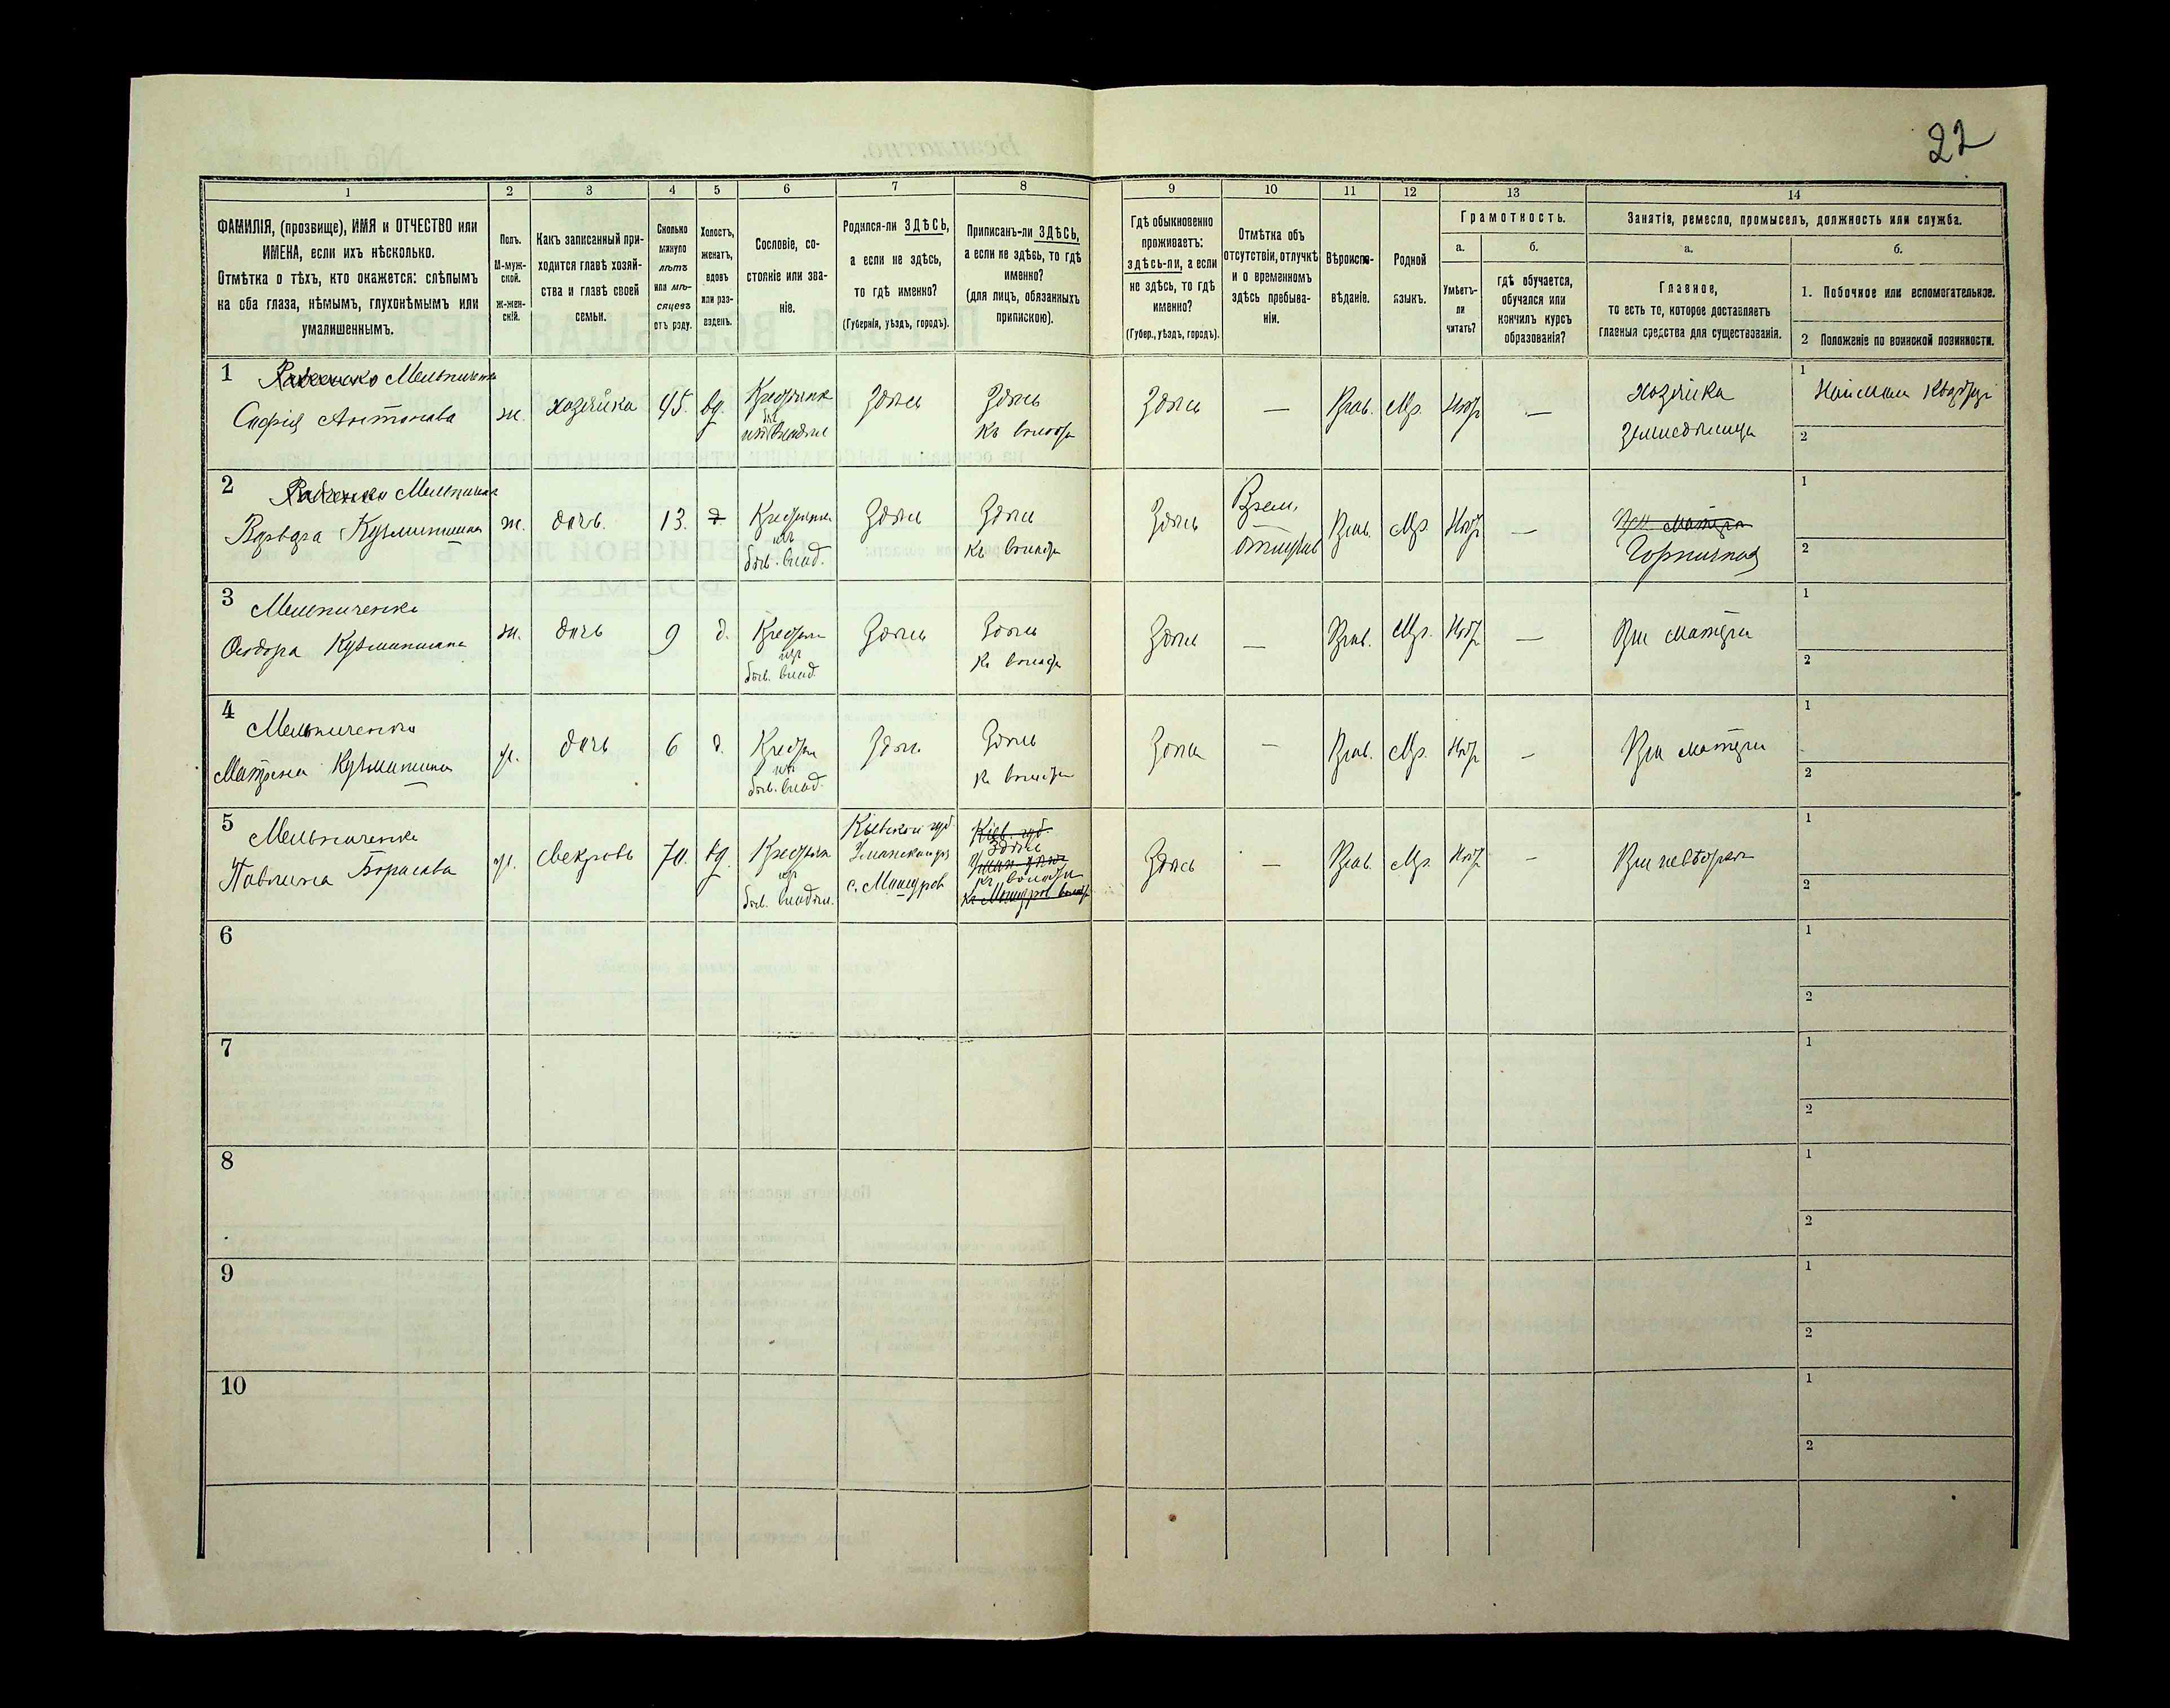 22
1
2
3
4
5
6
7
8
9
10
11
12
13
14
ФАМИЛІЯ, (прозвище), ИМЯ и ОТЧЕСТВО или
ИМЕНА, если ихъ нѣсколько.
Отмѣтка о тѣхъ, кто окажется: слѣпымъ
на оба глаза, нѣмымъ, глухонѣмымъ или
умалишеннымъ.
Полъ.
М-муж-
ской.
Ж-жен-
скій.
Какъ записанный при-
ходится главѣ хозяй-
ства и главѣ своей
семьи.
Сколько
минуло
лѣтъ
или мѣ-
сяцевъ
отъ роду.
Холостъ,
женатъ,
вдовъ
или раз-
веденъ.
Сословіе, со-
стояніе или зва-
ніе.
Родился-ли ЗДѢСЬ,
а если не здѣсь,
то гдѣ именно?
(Губернія, уѣздъ, городъ).
Приписанъ-ли ЗДѢСЬ,
а если не здѣсь, то гдѣ
именно?
(для лицъ, обязанныхъ
припискою).
Гдѣ обыкновенно
проживаетъ:
здѣсь-ли, а если
не здѣсь, то гдѣ
именно?
(Губер., уѣздъ, городъ).
Отмѣтка объ
отсутствіи, отлучкѣ
и о временномъ
здѣсь пребыва-
ніи.
Вѣроиспо-
вѣданіе.
Родной
языкъ.
Грамотность.
а.
б.
Умѣетъ-
ли
читать?
гдѣ обучается,
обучался или
кончилъ курсъ
образованія?
Занятіе, ремесло, промыселъ, должность или служба.
а.
б.
Главное,
то есть то, которое доставляетъ
главныя средства для существованія.
1. Побочное или вспомогательное.
2 Положеніе по воинской повинности.
1
Мельниченко
Софія Антонова
ж.
хозяйка
45.
вд.
Здѣсь
Здѣсь
къ волости
Здѣсь
—
Прав.
Мр.
Нѣтъ
—
хозяйка
1
2
2
Варвара Кузьминишна
ж.
дочь.
13.
Здѣсь
Здѣсь
къ волости
Здѣсь
Врем.
Прав.
Мр.
Нѣтъ
—
Горничная
1
2
3
Мельниченко
Федора Кузьминишна
ж.
дочь
9
д.
быв. влад.
Здѣсь
Здѣсь
къ волости
Здѣсь
—
Прав.
Мр.
Нѣтъ
—
При матери
1
2
4
Мельниченко
Матрена Кузьминишна
ж.
дочь
6
д.
быв. влад.
Здѣсь
Здѣсь
къ волости
Здѣсь
—
Прав.
Мр.
Нѣтъ
—
При матери
1
2
5
Мельниченко
Павлина Борисова
ж.
свекровь
70.
вд.
Кіевской губ.
с.
Здѣсь
къ волости
Здѣсь
—
Прав.
Мр.
Нѣтъ
—
При невѣсткѣ
1
2
6
1
2
7
1
2
8
1
2
9
1
2
10
1
2